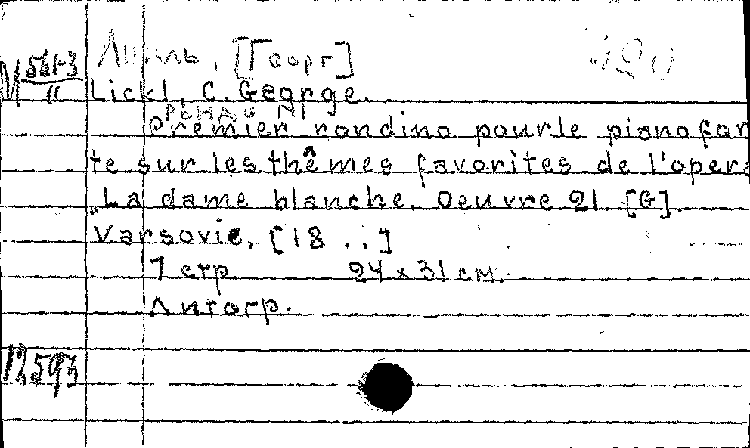 Ликль, [Георг]
420
М 561-3
11
Lickl, C. George.
Premier rondino pour le pianofor
te sur les thêmes favorites de l'opera
„La dame blanche. Oeuvre 21 [G].
Varsovie, [18 . .]
7 стр 24 x 31 см.
Литогр.
12593